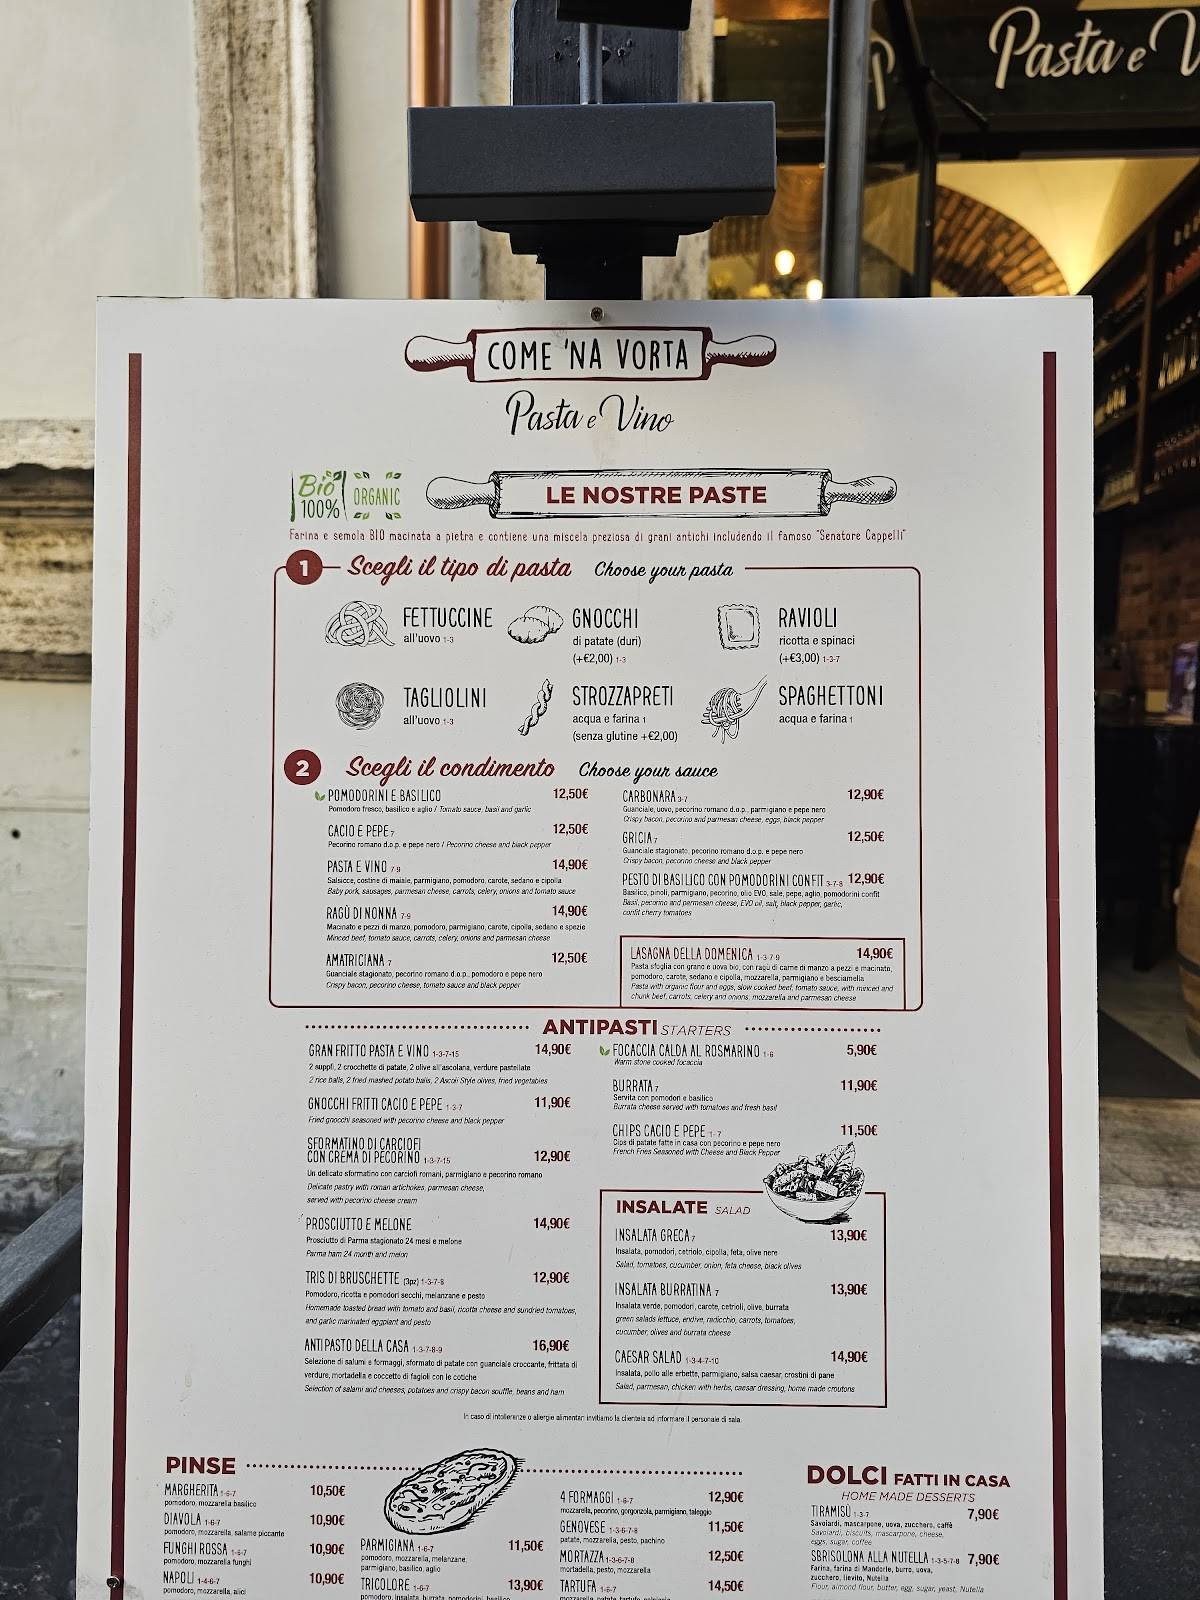 Pasta e V
COME 'NA VORTA
Pasta e Vino
Bio
100%
ORGANIC
LE NOSTRE PASTE
Farina e semola BIO macinata a pietra e contiene una miscela preziosa di grani antichi includendo il famoso "Senatore Cappelli"
1 Scegli il tipo di pasta Choose your pasta
FETTUCCINE
all'uovo 1-3
GNOCCHI
di patate (duri)
(+€2,00) 1-3
RAVIOLI
ricotta e spinaci
(+€3,00) 1-3-7
TAGLIOLINI
all'uovo 1-3
STROZZAPRETI
acqua e farina 1
(senza glutine +€2,00)
SPAGHETTONI
acqua e farina 1
2 Scegli il condimento Choose your sauce
POMODORINI E BASILICO 12,50€
Pomodoro fresco, basilico e aglio / Tomato sauce, basil and garlic
CACIO E PEPE 7 12,50€
Pecorino romano d.o.p. e pepe nero / Pecorino cheese and black pepper
PASTA E VINO 7-9 14,90€
Salsicce, costine di maiale, parmigiano, pomodoro, carote, sedano e cipolla
Baby pork, sausages, parmesan cheese, carrots, celery, onions and tomato sauce
RAGÙ DI NONNA 7-9 14,90€
Macinato e pezzi di manzo, pomodoro, parmigiano, carote, cipolla, sedano e spezie
Minced beef, tomato sauce, carrots, celery, onions and parmesan cheese
AMATRICIANA 7 12,50€
Guanciale stagionato, pecorino romano d.o.p., pomodoro e pepe nero
Crispy bacon, pecorino cheese, tomato sauce and black pepper
CARBONARA 3-7 12,90€
Guanciale, uovo, pecorino romano d.o.p., parmigiano e pepe nero
Crispy bacon, pecorino and parmesan cheese, eggs, black pepper
GRICIA 7 12,50€
Guanciale stagionato, pecorino romano d.o.p. e pepe nero
Crispy bacon, pecorino cheese and black pepper
PESTO DI BASILICO CON POMODORINI CONFIT 3-7-8 12,90€
Basilico, pinoli, parmigiano, pecorino, olio EVO, sale, pepe, aglio, pomodorini confit
Basil, pecorino and parmesan cheese, EVO oil, salt, black pepper, garlic,
confit cherry tomatoes
LASAGNA DELLA DOMENICA 1-3-7-9 14,90€
Pasta sfoglia con grano e uova bio, con ragù di carne di manzo a pezzi e macinato,
pomodoro, carote, sedano e cipolla, mozzarella, parmigiano e besciamella
Pasta with organic flour and eggs, slow cooked beef, tomato sauce, with minced and
chunk beef, carrots, celery and onions, mozzarella and parmesan cheese
ANTIPASTI STARTERS
GRAN FRITTO PASTA E VINO 1-3-7-15 14,90€
2 supplì, 2 crocchette di patate, 2 olive all'ascolana, verdure pastellate
2 rice balls, 2 fried mashed potato balls, 2 Ascoli Style olives, fried vegetables
GNOCCHI FRITTI CACIO E PEPE 1-3-7 11,90€
Fried gnocchi seasoned with pecorino cheese and black pepper
SFORMATINO DI CARCIOFI
CON CREMA DI PECORINO 1-3-7-15 12,90€
Un delicato sformatino con carciofi romani, parmigiano e pecorino romano
Delicate pastry with roman artichokes, parmesan cheese,
served with pecorino cheese cream
PROSCIUTTO E MELONE 14,90€
Prosciutto di Parma stagionato 24 mesi e melone
Parma ham 24 month and melon
TRIS DI BRUSCHETTE (3pz) 1-3-7-8 12,90€
Pomodoro, ricotta e pomodori secchi, melanzane e pesto
Homemade toasted bread with tomato and basil, ricotta cheese and sundried tomatoes,
and garlic marinated eggplant and pesto
ANTIPASTO DELLA CASA 1-3-7-8-9 16,90€
Selezione di salumi e formaggi, sformato di patate con guanciale croccante, frittata di
verdure, mortadella e coccetto di fagioli con le cotiche
Selection of salami and cheeses, potatoes and crispy bacon souffle, beans and ham
FOCACCIA CALDA AL ROSMARINO 1-6 5,90€
Warm stone cooked focaccia
BURRATA 7 11,90€
Servita con pomodori e basilico
Burrata cheese served with tomatoes and fresh basil
CHIPS CACIO E PEPE 1-7 11,50€
Cips di patate fatte in casa con pecorino e pepe nero
French Fries Seasoned with Cheese and Black Pepper
INSALATE SALAD
INSALATA GRECA 7 13,90€
Insalata, pomodori, cetriolo, cipolla, feta, olive nere
Salad, tomatoes, cucumber, onion, feta cheese, black olives
INSALATA BURRATINA 7 13,90€
Insalata verde, pomodori, carote, cetrioli, olive, burrata
green salads lettuce, endive, radicchio, carrots, tomatoes,
cucumber, olives and burrata cheese
CAESAR SALAD 1-3-4-7-10 14,90€
Insalata, pollo alle erbette, parmigiano, salsa caesar, crostini di pane
Salad, parmesan, chicken with herbs, caesar dressing, home made croutons
In caso di intolleranze o allergie alimentari invitiamo la clientela ad informare il personale di sala.
PINSE
MARGHERITA 1-6-7 10,50€
pomodoro, mozzarella basilico
DIAVOLA 1-6-7 10,90€
pomodoro, mozzarella, salame piccante
FUNGHI ROSSA 1-6-7 10,90€
pomodoro, mozzarella funghi
NAPOLI 1-4-6-7 10,90€
pomodoro, mozzarella, alici
PARMIGIANA 1-6-7 11,50€
pomodoro, mozzarella, melanzane,
parmigiano, basilico, aglio
TRICOLORE 1-6-7 13,90€
pomodoro, insalata, burrata, pomodorini, basilico
4 FORMAGGI 1-6-7 12,90€
mozzarella, pecorino, gorgonzola, parmigiano, taleggio
GENOVESE 1-3-6-7-8 11,50€
patate, mozzarella, pesto, pachino
MORTAZZA 1-3-6-7-8 12,50€
mortadella, pesto, mozzarella
TARTUFA 1-6-7 14,50€
mozzarella, patate, tartufo,
DOLCI FATTI IN CASA
HOME MADE DESSERTS
TIRAMISÙ 1-3-7 7,90€
Savoiardi, mascarpone, uova, zucchero, caffè
Savoiardi, biscuits, mascarpone, cheese,
eggs, sugar, coffee
SBRISOLONA ALLA NUTELLA 1-3-5-7-8 7,90€
Farina, farina di Mandorle, burro, uova,
zucchero, lievito, Nutella
Flour, almond flour, butter, egg, sugar, yeast, Nutella